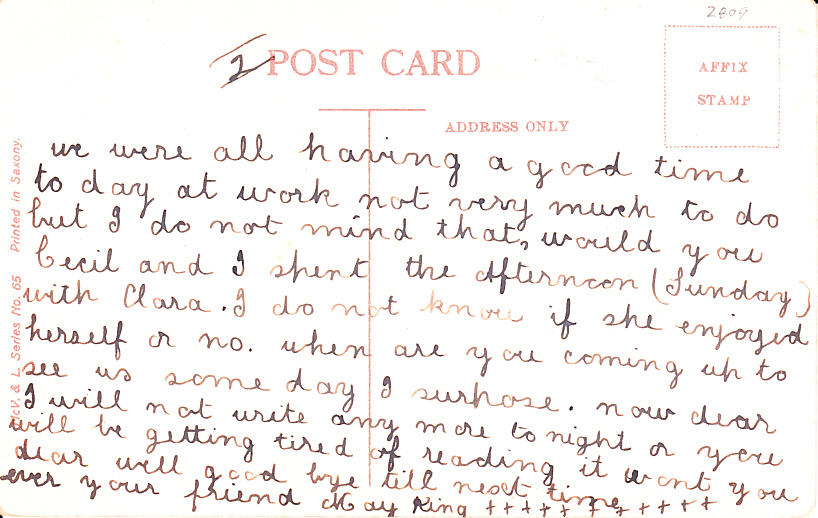 2809
2 POST CARD
AFFIX
STAMP
ADDRESS ONLY
McV. & L. Series No. 65 Printed in Saxony.
we were all having a good time
to day at work not very much to do
but I do not mind that, would you
Cecil and I spent the Afternoon (Sunday)
with Clara. I do not know if she enjoyed
herself or no. when are you coming up to
see us some day I surpose. now dear
I will not write any more to night or you
will be getting tired of reading it wont you
dear well good bye till next time
ever your friend May King + + + + + + + + + +